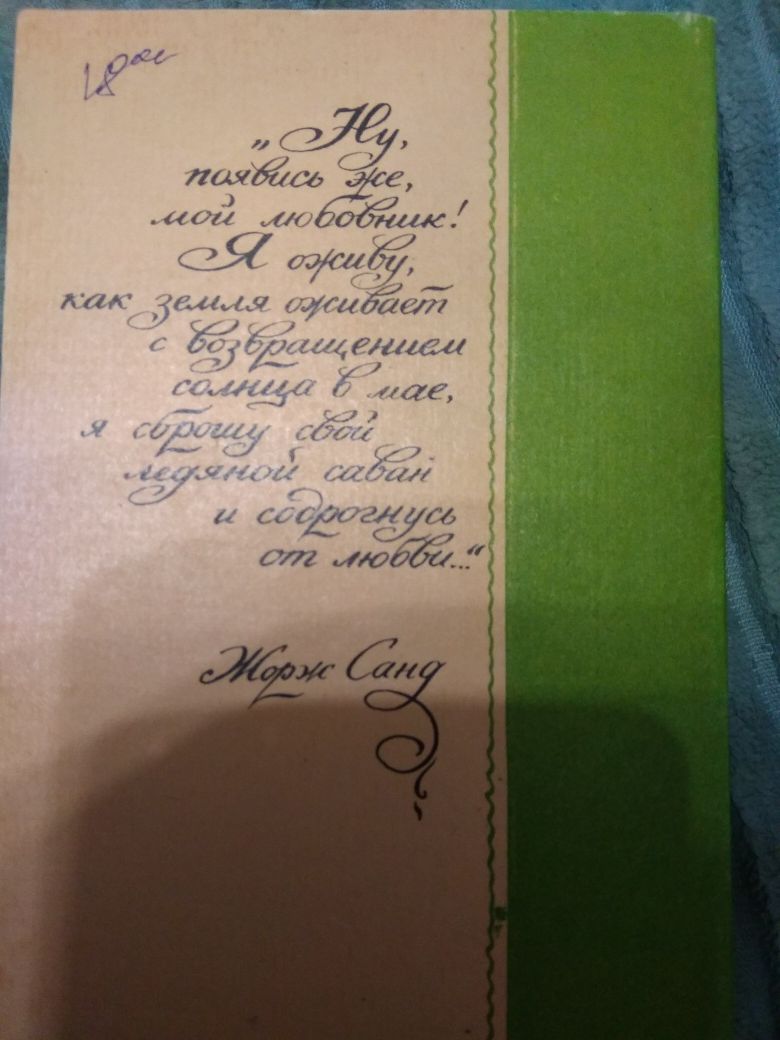 „Ну,
появись же,
мой любовник!
Я оживу,
как земля оживает
с возвращением
солнца в мае,
я сброшу свой
ледяной саван
и содрогнусь
от любви..."
Жорж Санд